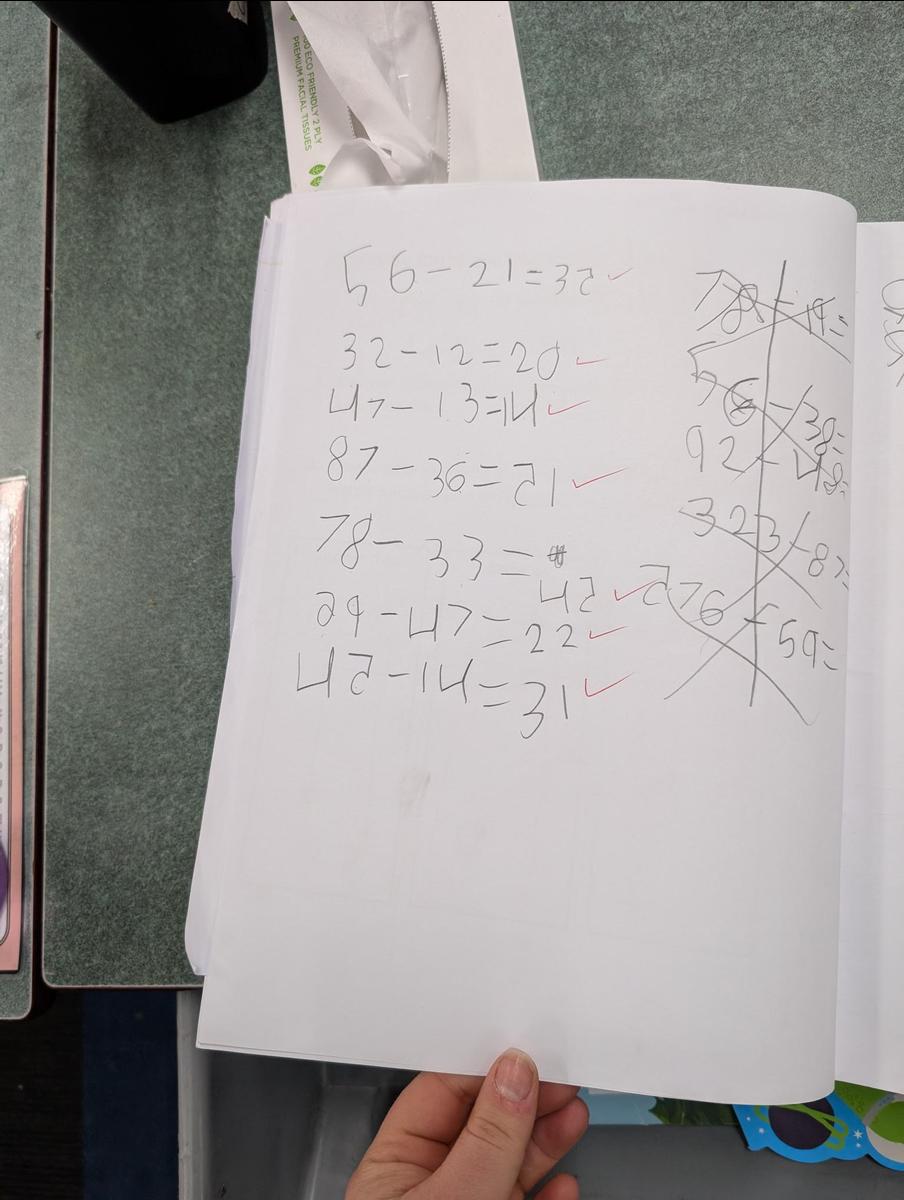 ECO FRIENDLY 2 PLY
PREMIUM FACIAL TISSUES
56-21=35
32-12=20
47-13=14
87-36=51
78-33=
45
59-47=22
45-14=31
78-19=
56-38=
92-48=
323-87=
576-59=